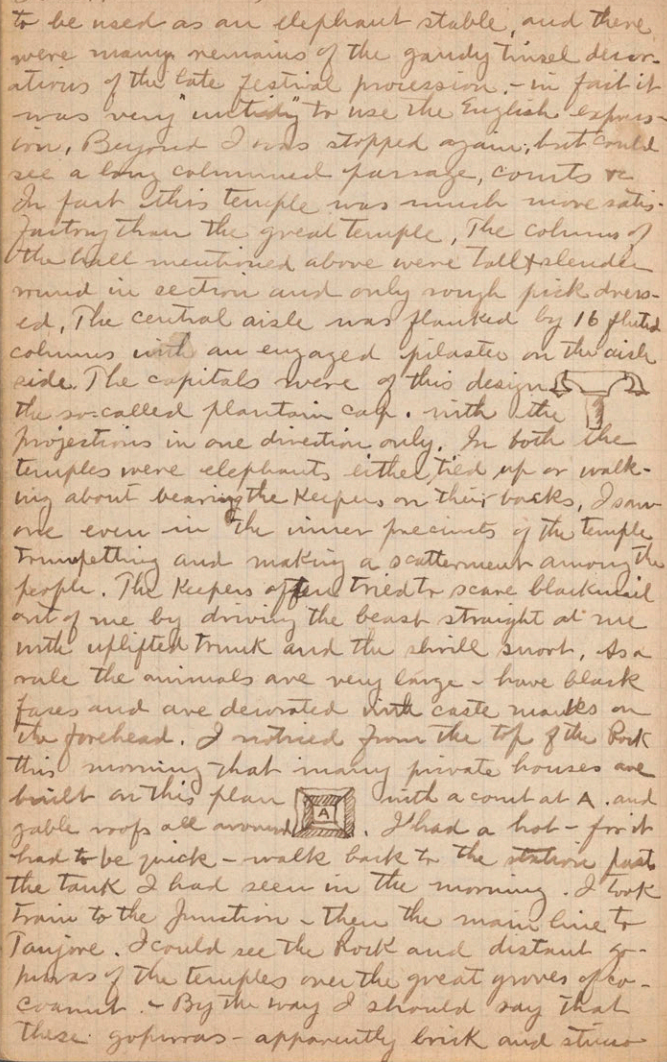 to be used as an elephant stable, and there
were many remains of the gaudy tinsel decor-
ations of the late festival procession. - in fact it
was very "untidy" to use the English express-
ion, Beyond I was stopped again, but could
see a long columned passage, courts &c
In fact this temple was much more satis-
factory than the great temple, The columns of
the hall mentioned above were tall & slender
round in section and only rough pick dress-
ed, The central aisle was flanked by 16 fluted
columns with an engaged pilaster on the aisle
side. The capitals were of this design
the so-called plantain cap. with the
projections in one direction only. In both the
temples were elephants either tied up or walk-
ing about bearing the Keepers on their backs, I saw
one even in the inner precincts of the temple
trumpetting and making a scatterment among the
people. The Keepers often tried to scare blackmail
out of me by driving the beast straight at me
with uplifted trunk and the shrill snort, As a
rule the animals are very large - have black
faces and are decorated with caste marks on
the forehead. I noticed from the top of the Rock
this morning that many private houses are
built on this plan A with a court at A. and
gable roofs all around. I had a hot - for it
had to be quick - walk back to the station past
the tank I had seen in the morning. I took
train to the Junction - then the main line to
Tanjore. I could see the Rock and distant go-
puras of the temples over the great groves of co-
coanut. - By the way I should say that
these gopuras - apparently brick and stucco